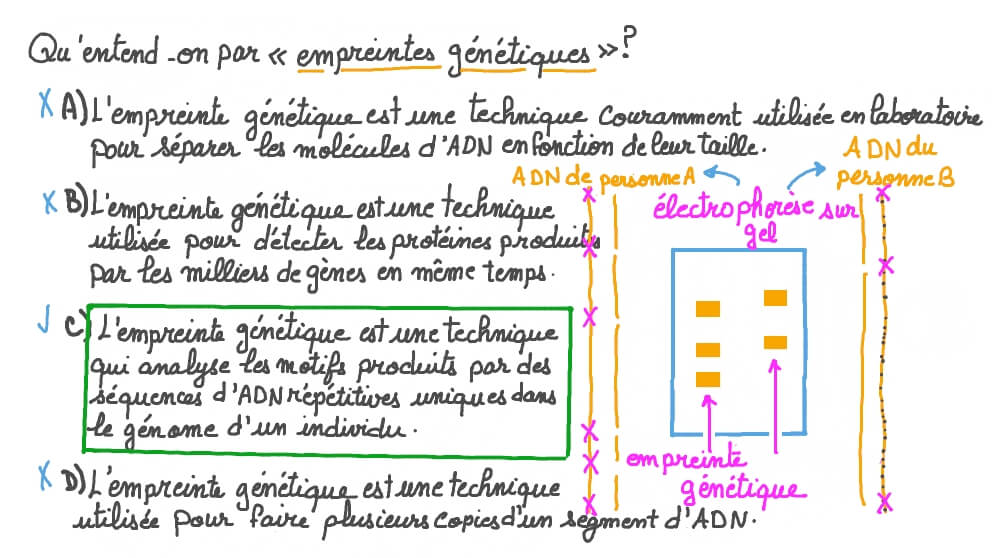 Qu'entend-on par « empreintes génétiques »?
A) L'empreinte génétique est une technique couramment utilisée en laboratoire
pour séparer les molécules d'ADN en fonction de leur taille.
ADN de personne A
ADN du
personne B
électrophorèse sur
gel
B) L'empreinte génétique est une technique
utilisée pour détecter les protéines produites
par les milliers de gènes en même temps.
C) L'empreinte génétique est une technique
qui analyse les motifs produits par des
séquences d'ADN répétitives uniques dans
le génome d'un individu.
empreinte
génétique
D) L'empreinte génétique est une technique
utilisée pour faire plusieurs copies d'un segment d'ADN.